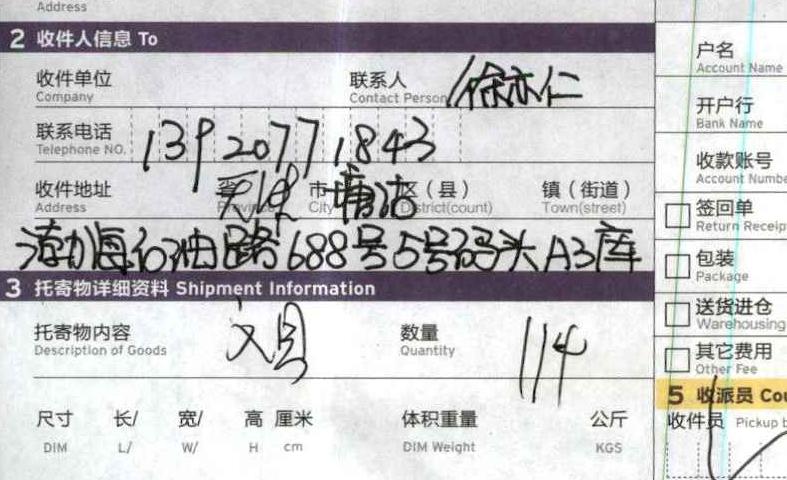 Address
2 收件人信息 To
收件单位 Company 联系人 Contact Person 徐亦仁
联系电话 Telephone NO. 139 2077 1843
收件地址 Address 天津 省 Province 市 City 塘沽 区（县） District(count) 镇（街道） Town(street)
渤海石油路688号5号码头A3库
3 托寄物详细资料 Shipment Information
托寄物内容 Description of Goods 文具 数量 Quantity 114
尺寸 DIM 长/ L/ 宽/ W/ 高 H 厘米 cm 体积重量 DIM Weight 公斤 KGS
户名
Account Name
开户行
Bank Name
收款账号
Account Numbe
签回单
Return Receip
包装
Package
送货进仓
Warehousing
其它费用
Other Fee
5 收派员 Cou
收件员 Pickup b